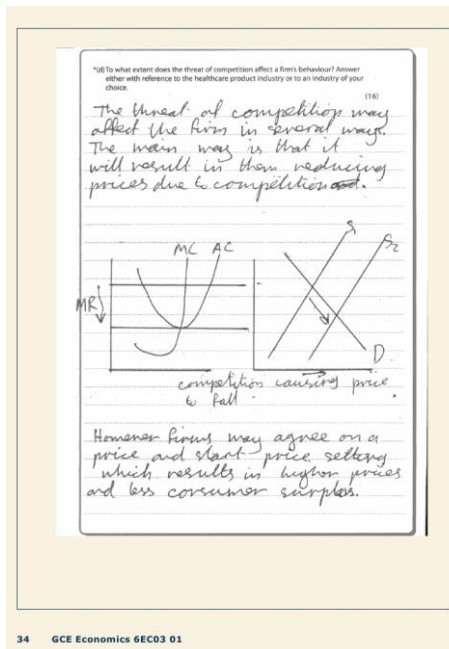 *(d) To what extent does the threat of competition affect a firm's behaviour? Answer
either with reference to the healthcare product industry or to an industry of your
choice.
(16)
The threat of competition may
affect the firm in several ways.
The main way is that it
will result in them reducing
prices due to competition
MC AC
S1
S2
MR
D
competition causing price
to fall.
However firms may agree on a
price and start price setting
which results in higher prices
and less consumer surplus.
34 GCE Economics 6EC03 01